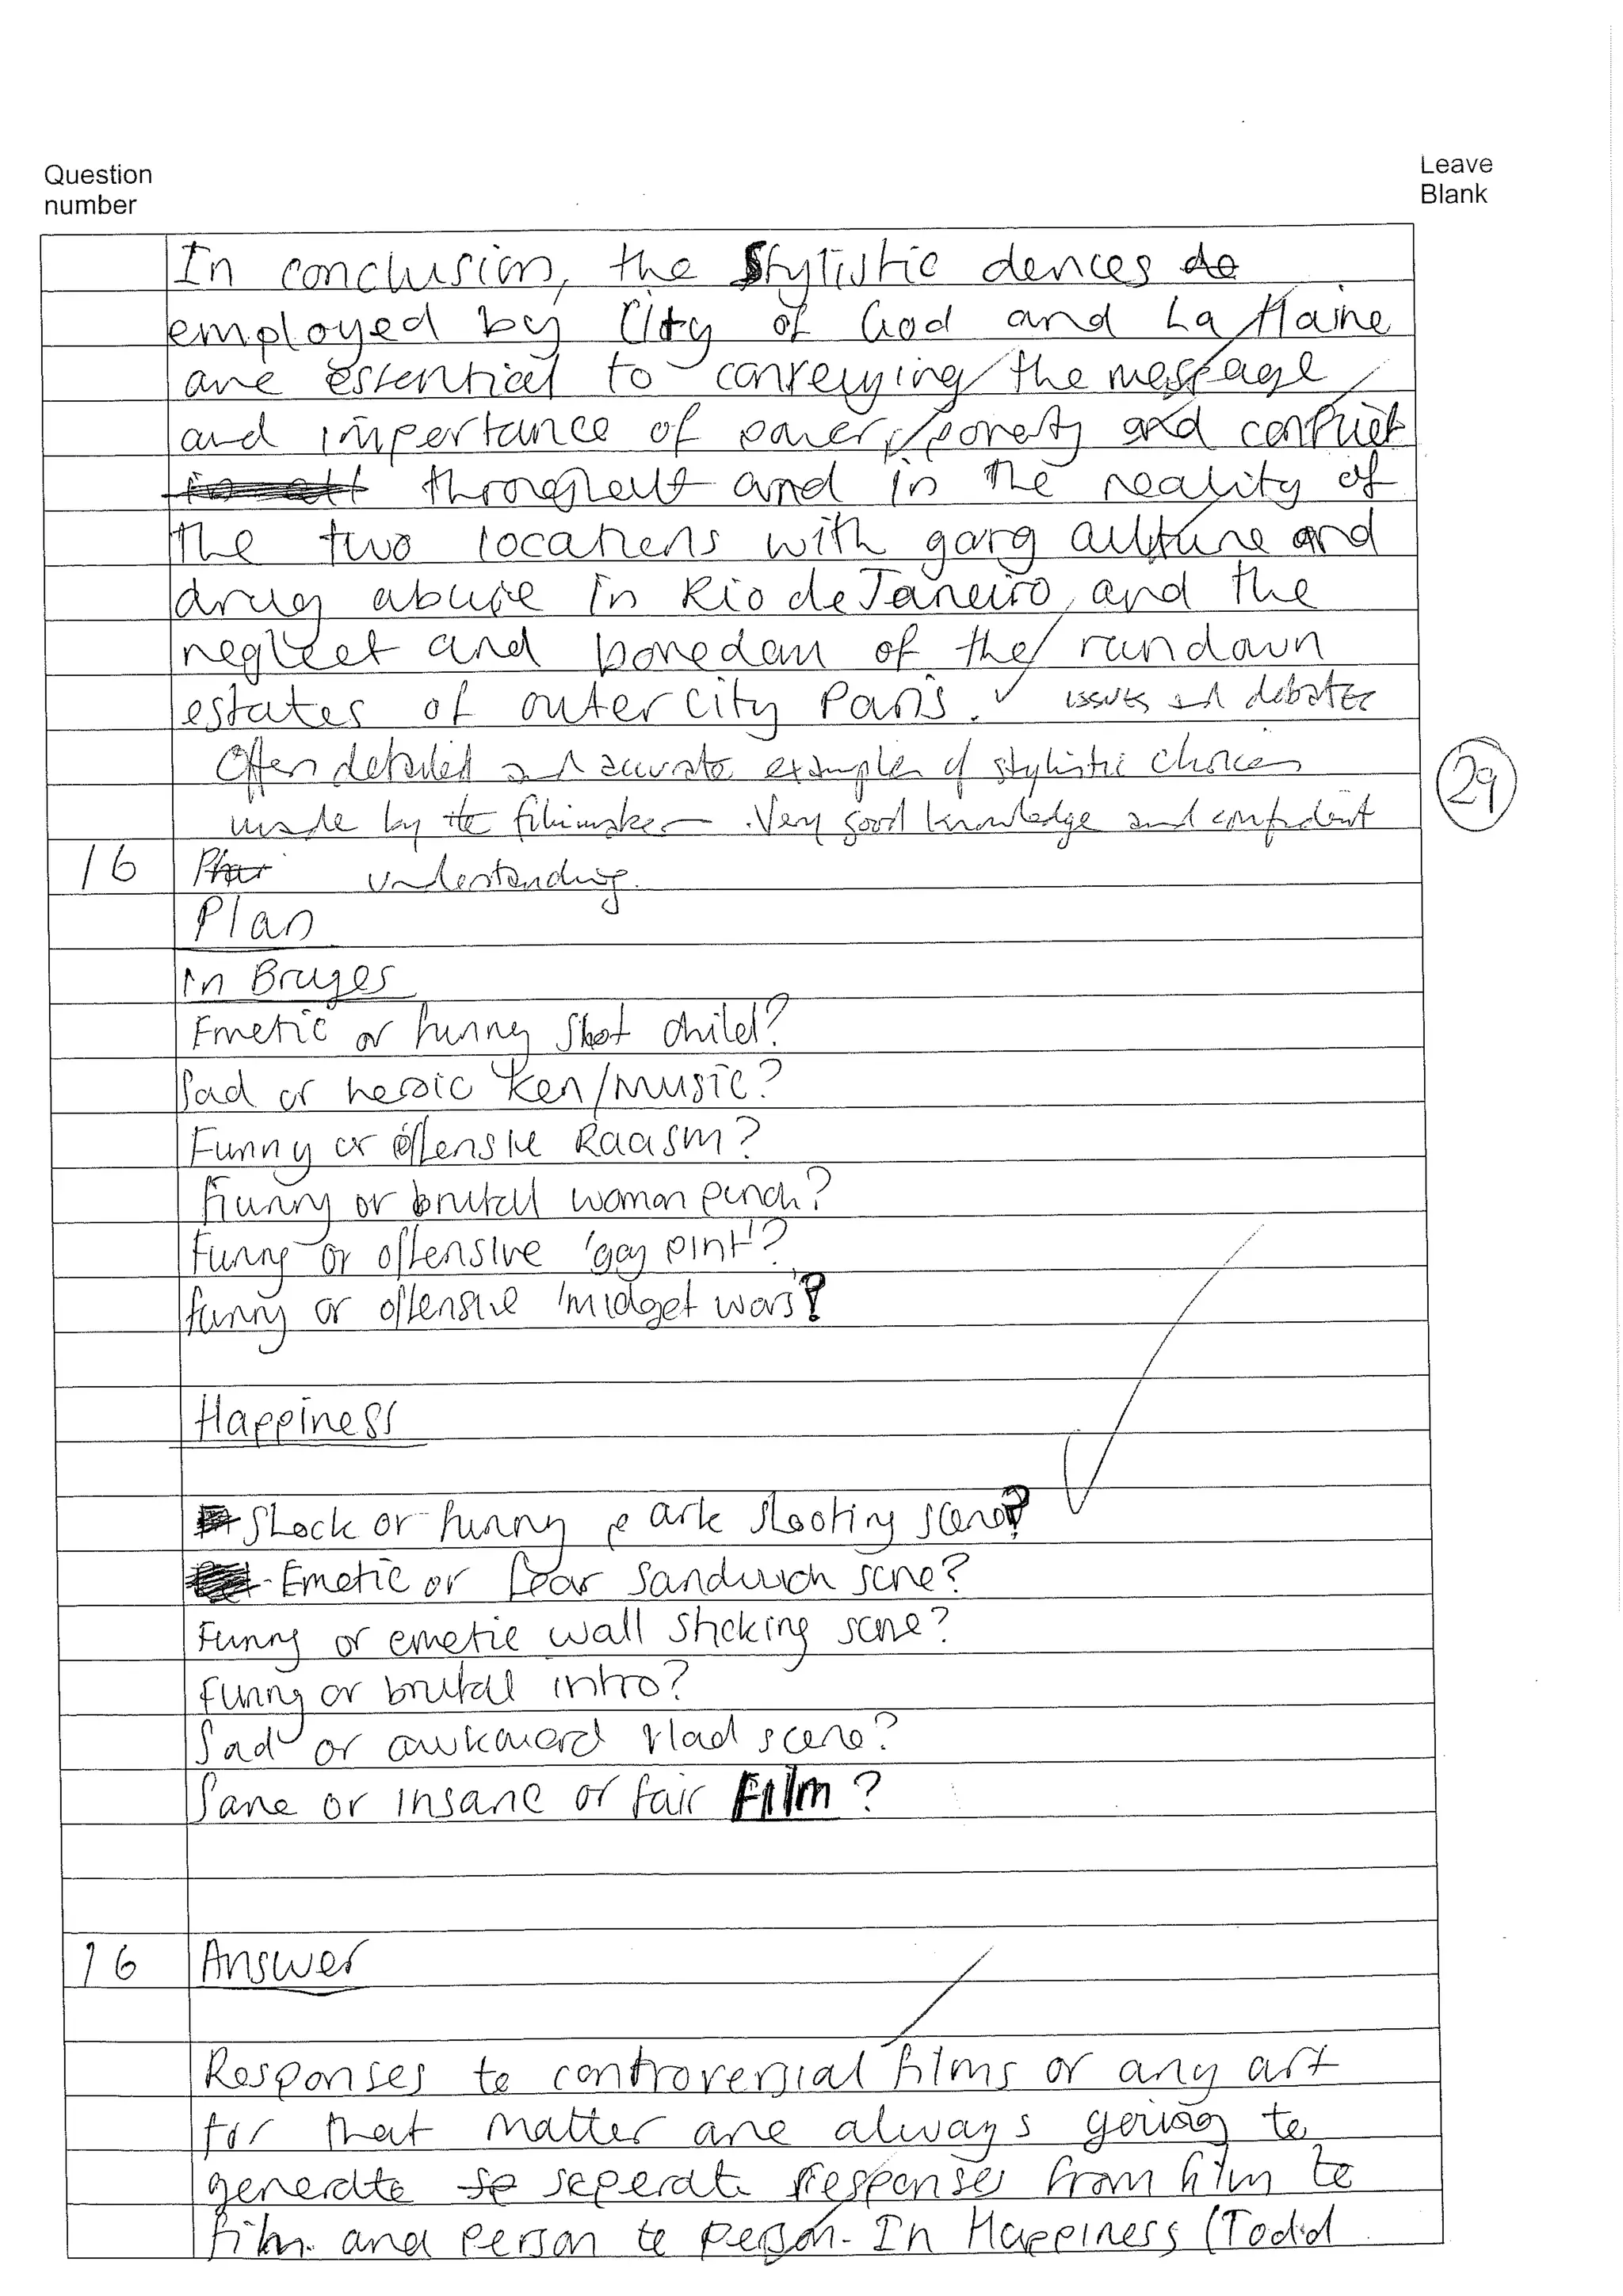 Question
number
Leave
Blank
In conclusion, the Stylistic devices do
employed by City of God and La Haine
are essential to conveying the message
and importance of power, poverty and conflict
throughout and in the reality of
the two locations with gang culture and
drug abuse in Rio de Janeiro, and the
neglect and boredom of the rundown
estates of outer city Paris. issues and debates
Offers detailed and accurate examples of stylistic choices
made by the filmmaker. Very good knowledge and confident
29
16 understanding.
Plan
In Bruges
Emetic or funny shot child?
Sad or heroic Ken/music?
Funny or offensive Racism?
Funny or brutal woman punch?
Funny or offensive 'gay pint'?
funny or offensive 'midget wars'?
Happiness
Shock or funny park shooting scene?
- Emetic or fear sandwich scne?
Funny or emetic wall sticking scne?
Funny or brutal intro?
Sad or awkward Vlad scene?
Sane or insane or fair Film?
16 Answer
Responses to controversial films or any art
for that matter are always going to
generate se seperate responses from film to
film and person to person. In Happiness (Todd